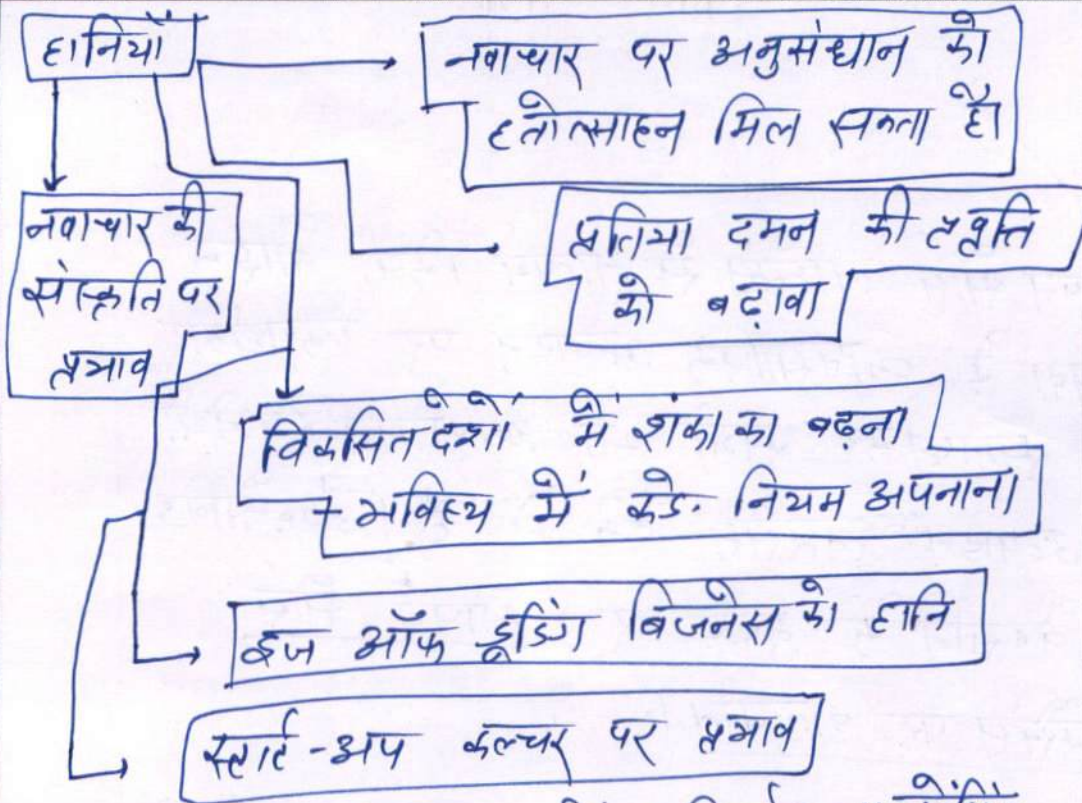 हानियाँ
नवाचार पर अनुसंधान को
हतोत्साहन मिल सकता है।
नवाचार की
संस्कृति पर
प्रभाव
प्रतिभा दमन की प्रवृत्ति
को बढ़ावा
विकसित देशों में शंका का बढ़ना
+ भविष्य में कड़े नियम अपनाना
इज ऑफ डूइंग बिजनेस को हानि
स्टार्ट-अप कल्चर पर प्रभाव